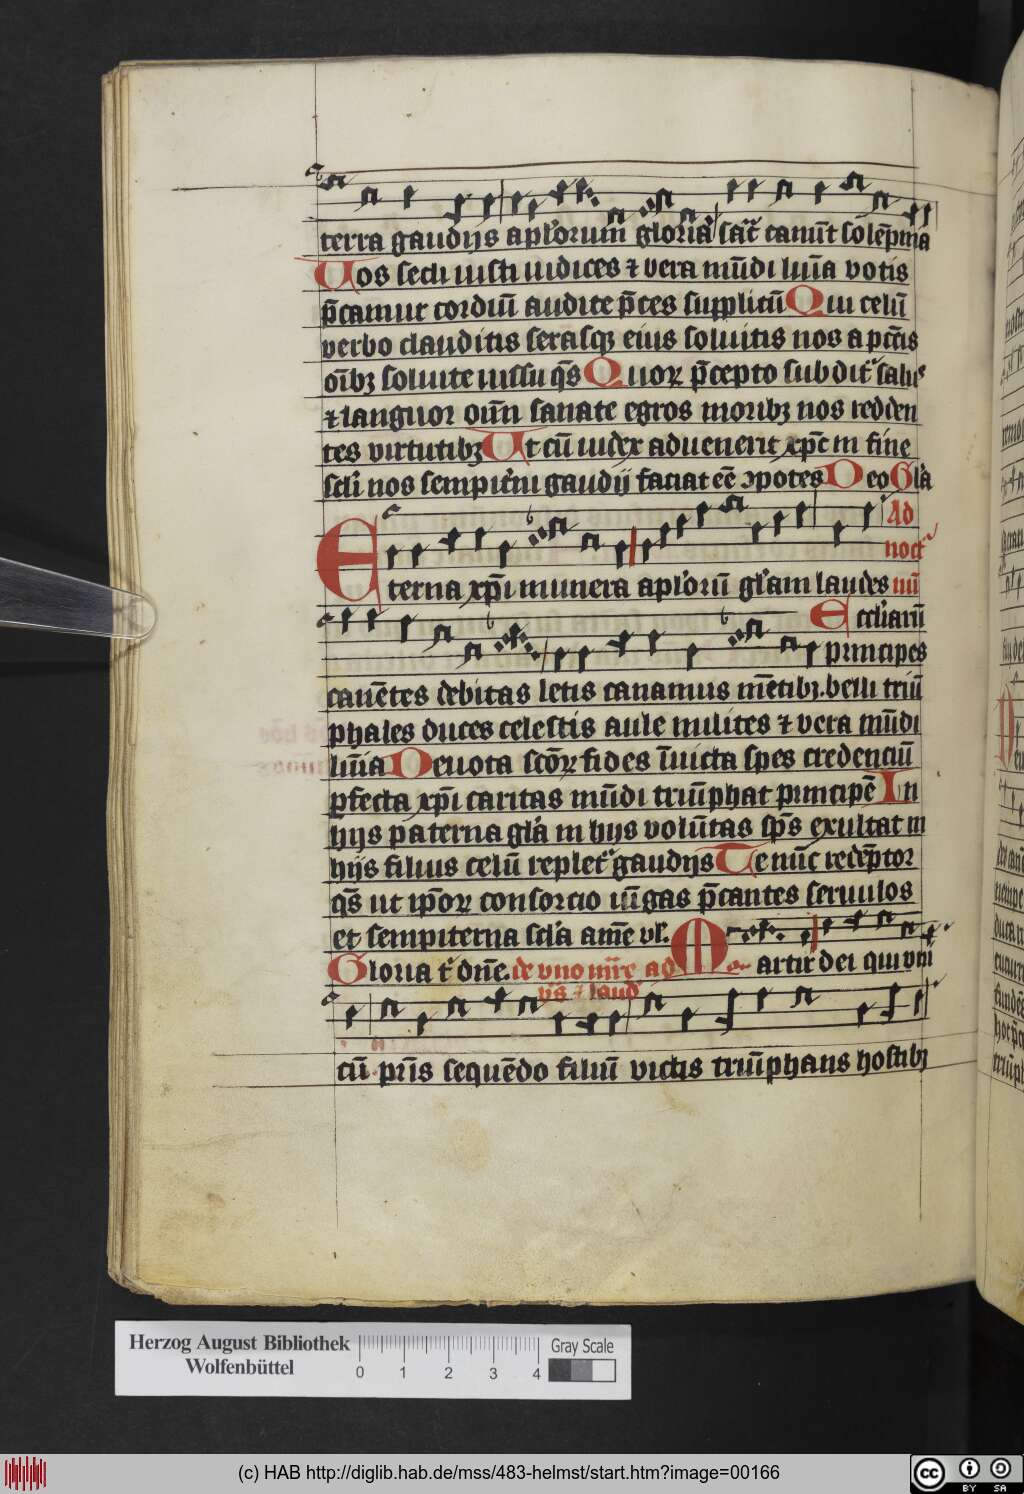 terra gaudijs aplo᷑orum gloria sac̄ canūt solēpnia
Vos secli iusti iudices ⁊ vera mūdi lumīa votis
p̄camur cordiū audite p̄ces supplicū Qui celū
verbo clauditis serasqꝫ eius soluitis nos a pctīs
oībꝫ soluite iussu qs̄ Quoꝝ p̄cepto subditᷣ salus
⁊ languor oīm sanate egros moribꝫ nos redden
tes virtutibꝫ Ut cū iudex aduenerit xp̄c in fine
scl̄i nos sempitͥni gaudij faciat eē ꝯpotes Deo Gl̄a
Ad
noctᷣ
Eterna xp̄i munera apl̓orū gl̓am laudes
nū
Eccl̓iarū
principes
canētes debitas letis canamus mētibꝫ. belli triū
phales duces celestis aule milites ⁊ vera mūdi
lumīa Deuota scōꝝ fides īuicta spes credenciū
ꝑfecta xp̄i caritas mūdi triūphat principē In
hijs paterna gl̓a in hijs volūtas sp̄s exultat in
hijs filius celū repletᷣ gaudijs Te nūc redēptor
qs̄ ut ip̄oꝝ consorcio iūgas p̄cantes seruulos
et sempiterna scl̓a amē vl̓.
Gloria tⁱ dn̄e. de vno mr̄e ad
Martir dei qui vni
vs̄ ⁊ laudᷤ
cū pr̄is sequēdo filiū victis triūphans hostibꝫ
Herzog August Bibliothek
Wolfenbüttel
0 1 2 3 4
Gray Scale
(c) HAB http://diglib.hab.de/mss/483-helmst/start.htm?image=00166
cc BY SA